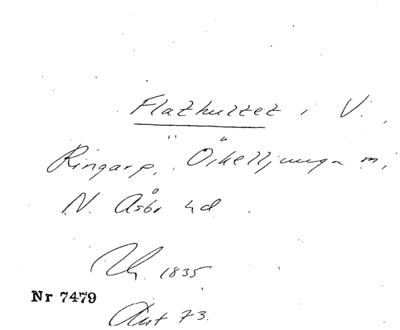 Flathultet i V.,
Ringarp, Örkelljunga m,
N. Åsbo hd.
Uk. 1835
Nr 7479
Ant 73.